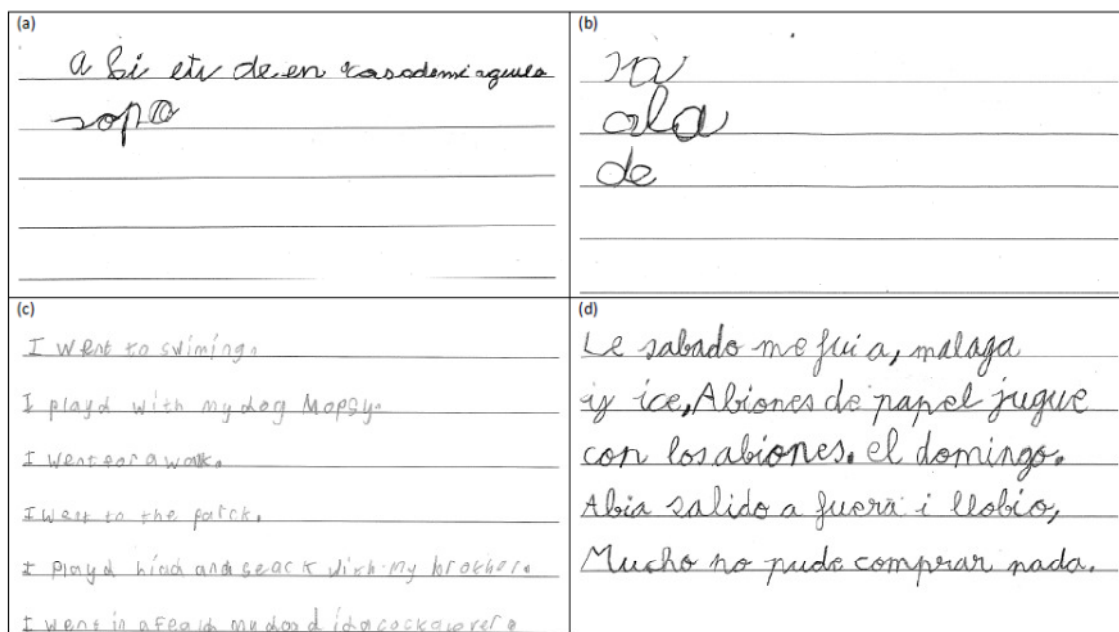 (a)
a bi etu de en casademi aguela
sopa
(b)
ra
ala
de
(c)
I went to swiming.
I playd with my dog Mopsy.
I went for a walk.
I went to the parck.
I playd hiad and seack with my brother.
I went in a feald my dog did a cockaover.
(d)
Le sabado me fui a, malaga
iy ice, Abiones de papel jugue
con los abiones. el domingo.
Abia salido a fuera i llobio,
Mucho no pude comprar nada.